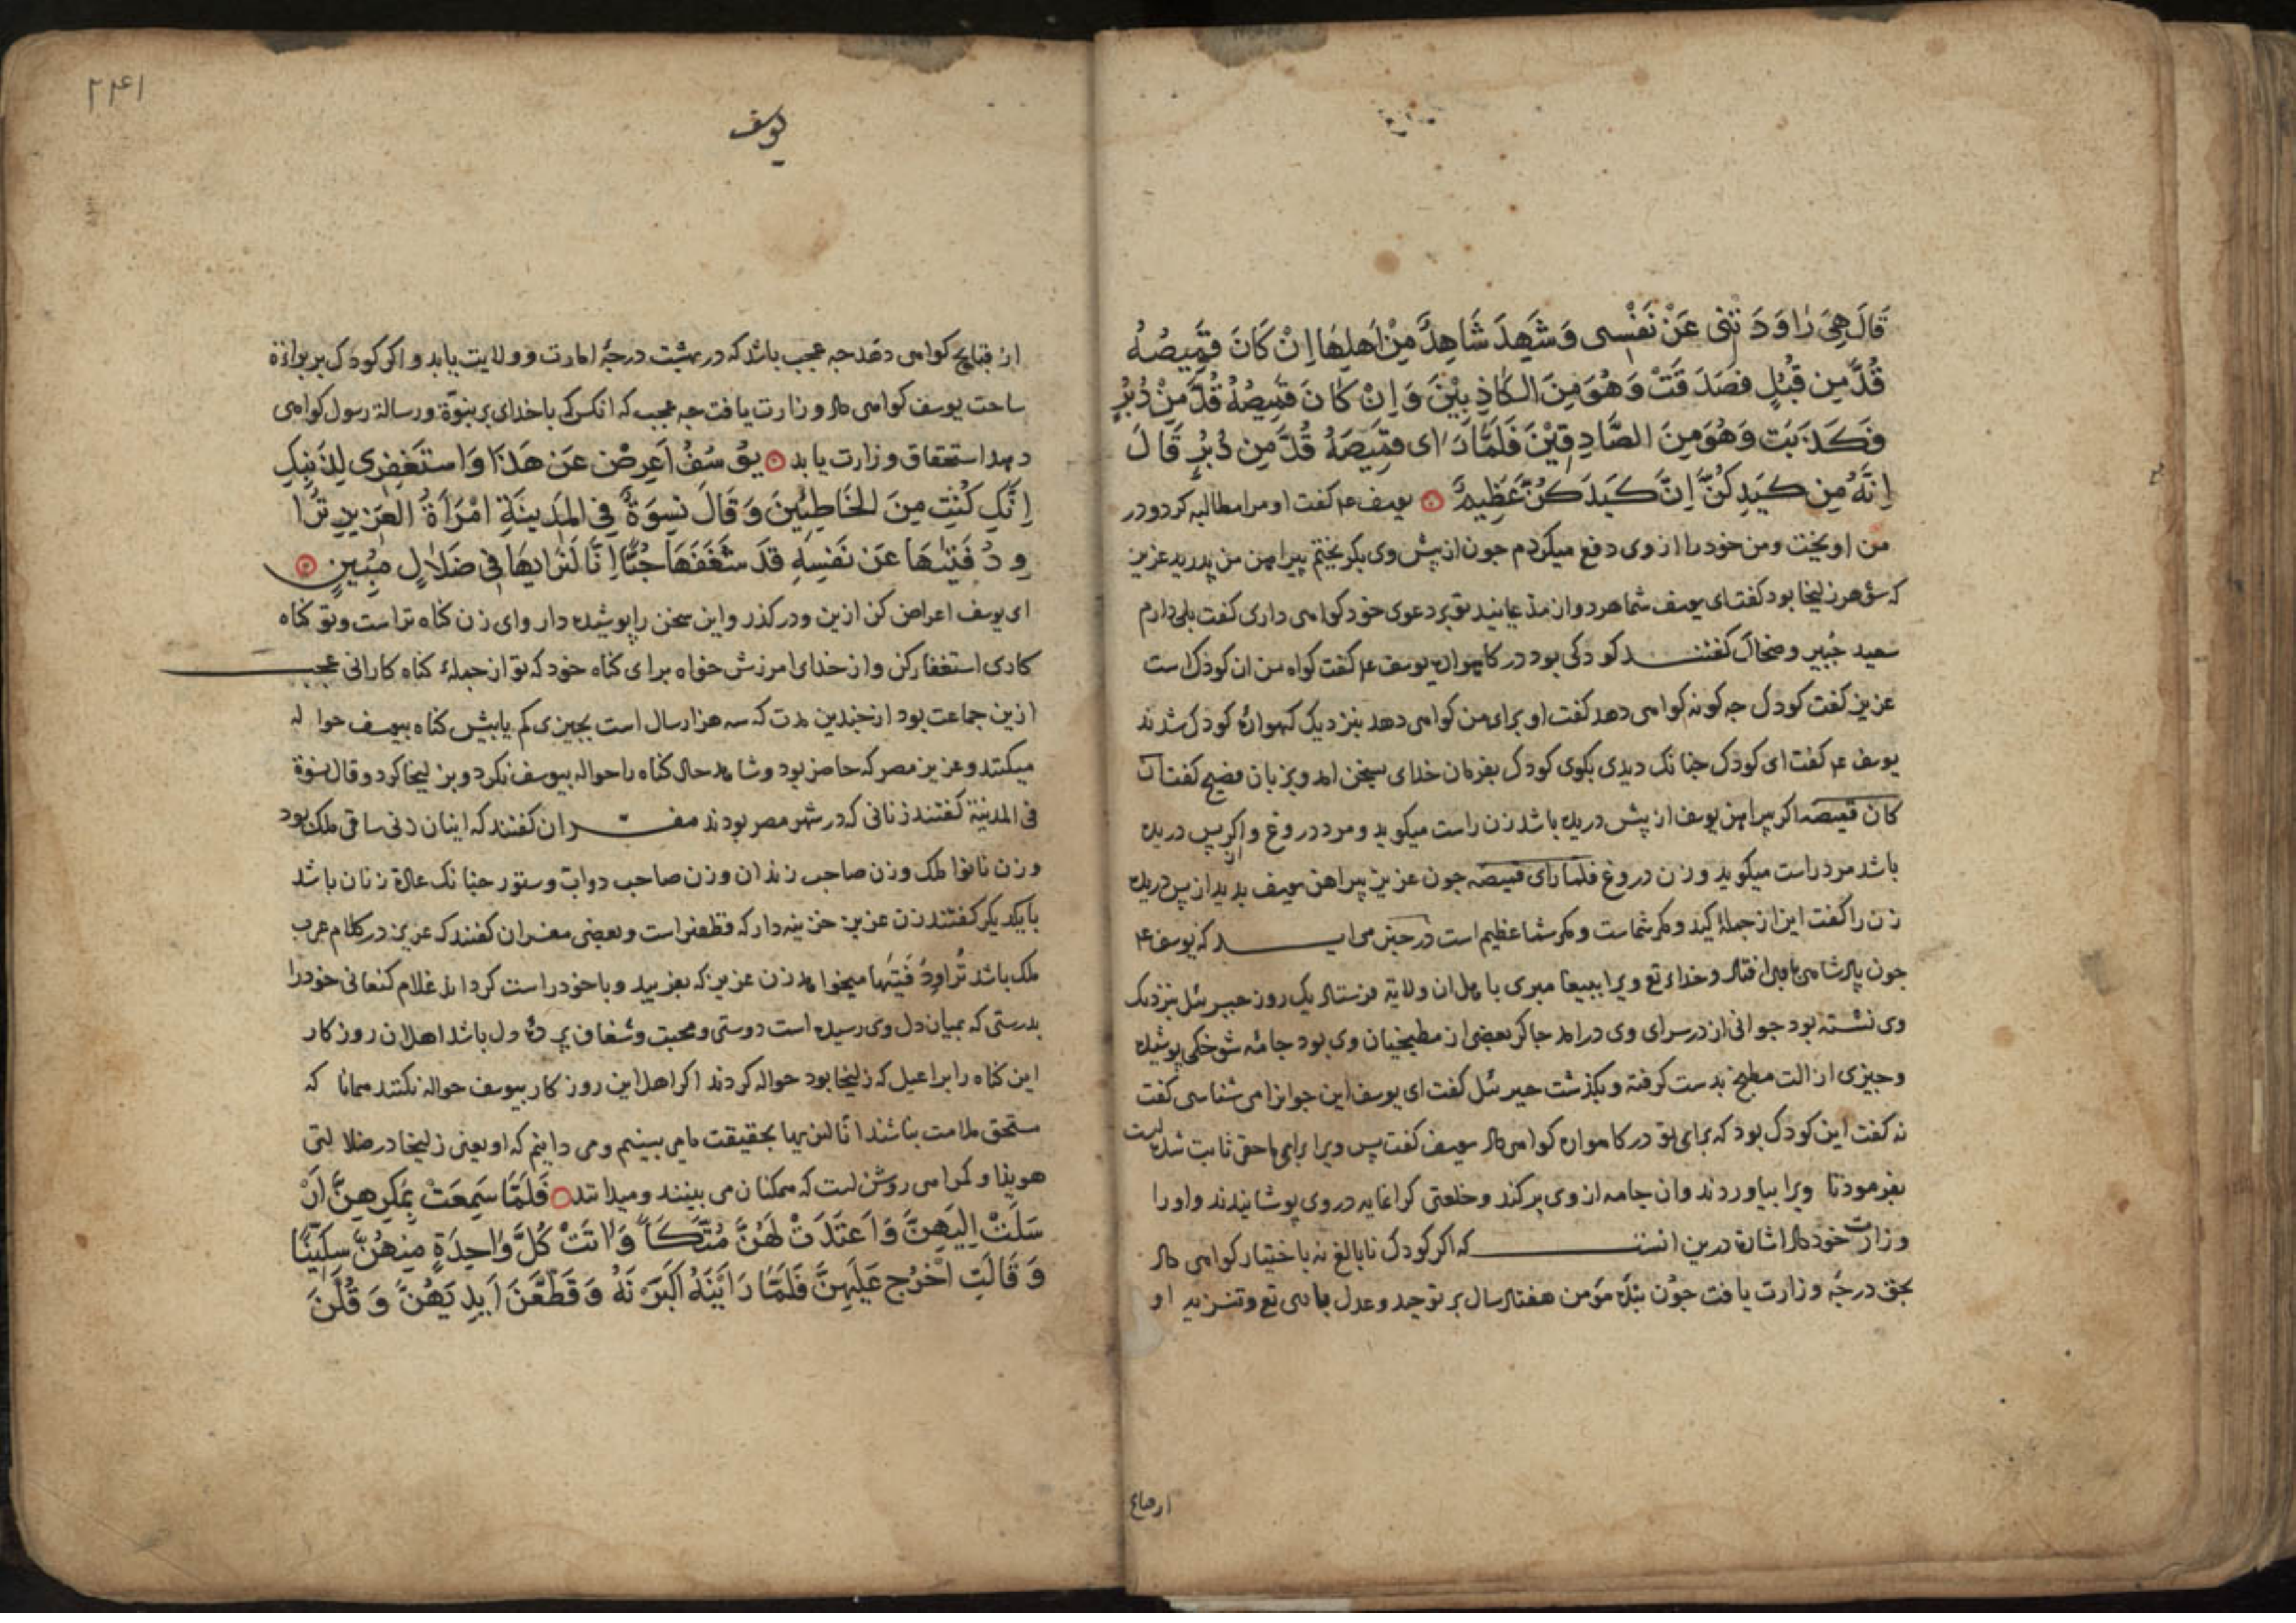 قَالَ هِيَ رَاوَدَتْنِى عَنْ نَفْسِى وَشَهِدَ شَاهِدٌ مِنْ اَهْلِهَا اِنْ كَانَ قَمِيصُهُ
قُدَّ مِن قُبُلٍ فَصَدَقَتْ وَهُوَ مِنَ الكَاذِبِيْنَ وَاِنْ كَانَ قَمِيصُهُ قُدَّ مِنْ دُبُرٍ
فَكَذَبَت وَهُوَ مِنَ الصَّادِقِيْنَ فَلَمَّا رَاى قَمِيصَهُ قُدَّ مِن دُبُرٍ قَالَ
اِنَّهُ مِن كَيدِكُنَّ اِنَّ كَيدَكُنَّ عَظِيمٌ یوسف ع م کفت او مرا مطالبه کرد و در
من اویخت و من خود را از وی دفع میکردم جون از پیش وی بکریختم پیراهن من بدرید عزیز
که شوهر زلیخا بود کفت ای یوسف شما هر دوان مدعیانید تو بر دعوی خود کواهی داری کفت بلی دارم
سعید جُبیر و ضحاک کفتند کودکی بود در کاهواره یوسف ع م کفت کواه من ان کودک است
عزیز کفت کودک جه کونه کواهی دهد کفت او برای من کواهی دهد بنزدیک کهواره کودک شدند
یوسف ع م کفت ای کودک جنانک دیدی بکوی کودک بفرمان خدای بسخن امد و بزبان فصیح کفت ان
کان قمیصه اکر پیراهن یوسف از پیش دریده باشد زن راست میکوید و مرد دروغ و اکر از پس دریده
باشد مرد راست میکوید و زن دروغ فلما رای قمیصه جون عزیز پیراهن یوسف بدید از پس دریده
زن را کفت این از جمله کید و مکر شماست و مکر شما عظیم است در خبر می اید که یوسف ع م
جون پادشاهی افتاد و خداء تع ویرا ببیغامبری باهل ان ولایة فرستاد یک روز جبرئیل بنزدیک
وی نشسته بود جوانی از در سرای وی درامد جاکر بعضی از مطبخیان وی بود جامه شوخکن پوشیده
و جیزی از الت مطبخ بدست کرفته و بکذشت جبرئیل کفت ای یوسف این جوانرا می شناسی کفت
نه کفت این کودک بود که برای تو در کاهواره کواهی داد یوسف کفت پس ویرا برای ما حقی ثابت شده است
بفرمود تا ویرا بیاوردند وان جامه از وی برکند و خلعتی کرانمایه در وی پوشانیدند و او را
وزارت خود داد اشارة درین انست که اکر کودک نابالغ نه باختیار کواهی داد
بحق درجه وزارت یافت جون بنده مؤمن هفتاد سال بر توحید و عدل تع و تنزیه او
ارصاع
۲۴۱
یوسف
از قبایح کواهی دهد جه عجب باشد که در بهشت درجه امارت و ولایت یابد و اکر کودک بر براءة
ساحت یوسف کواهی داد وزارت یافت جه عجب که انکس که باخدای بر نبوّة و رسالة رسول کواهی
دهد استحقاق وزارت یابد يُوسُفُ اَعرِضْ عَن هَذَا وَاستَغفِرِى لِذَنبِكِ
اِنَّكِ كُنتِ مِنَ الخَاطِئِينَ وَقَالَ نِسوَةٌ فِى المَدِينَةِ امْرَأَةُ العَزِيزِ تُرَا
وِدُ فَتٰىهَا عَن نَفسِهِ قَد شَغَفَهَا حُبًّا اِنَّا لَنَرٰىهَا فِى ضَلَالٍ مُبِينٍ
ای یوسف اعراض کن ازین و درکذر و این سخن را پوشیده دار و ای زن کناه تراست و تو کناه
کاری استغفار کن و از خدای امرزش خواه برای کناه خود که تو از جمله کناه کارانی عجب
ازین جماعت بود از جندین مدت که سه هزار سال است بجیزی کم یا بیش کناه بیوسف حواله
میکنند و عزیز مصر که حاضر بود و شاهد حال کناه را حواله بیوسف نکرد و بزلیخا کرد و قال نسوة
فی المدینة کفتند زنانی که در شهر مصر بودند مفسران کفتند که اینان زن ساقی ملک بود
و زن نانوا ملک و زن صاحب زندان و زن صاحب دوابّ و ستور جنانک عادة زنان باشد
با یکدیکر کفتند زن عزیز خزینه دار که قطفیر است و بعضی مفسران کفتند که عزیز در کلام عرب
ملک باشد تُراوِدُ فَتیٰها میخواهد زن عزیز که بفریبد و باخود راست کرداند غلام کنعانی خود را
بدرستی که بمیان دل وی رسیده است دوستی و محبت و شغاف پرده دل باشد اهل ان روزکار
این کناه را براعیل که زلیخا بود حواله کردند اکر اهل این روزکار بیوسف حواله نکنند همانا که
مستحق ملامت نباشند انا لنریها بحقیقت ما می بینیم و می دانیم که او یعنی زلیخا در ضلالتی
هویدا و کمراهی روشن است که همکنان می بینند و میدانند فَلَمَّا سَمِعَتْ بِمَكرِهِنَّ اَرْ
سَلَتْ اِلَيهِنَّ وَاَعتَدَتْ لَهُنَّ مُتَّكَاً وَاٰتَتْ كُلَّ وَاحِدَةٍ مِنهُنَّ سِكِّينًا
وَقَالَتِ اخْرُج عَلَيهِنَّ فَلَمَّا رَاَينَهُ اَكبَرنَهُ وَقَطَّعنَ اَيدِيَهُنَّ وَقُلنَ